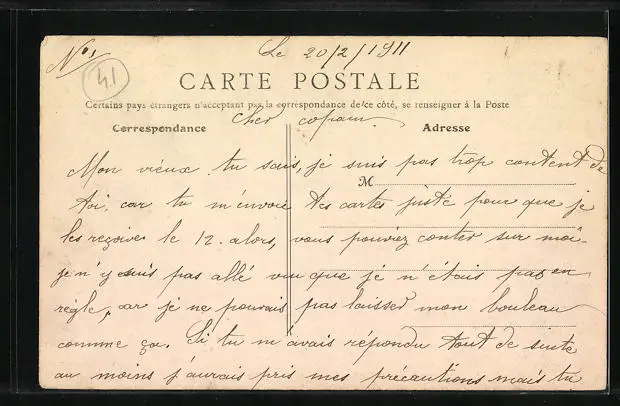 No 1
Le 20/2/1911
41
CARTE POSTALE
Certains pays étrangers n'acceptant pas la correspondance de ce côté, se renseigner à la Poste
Cher copain
Correspondance
Adresse
M
Mon vieux tu sais, je suis pas trop content de
toi, car tu m'envoie tes cartes juste pour que je
les reçoive le 12. alors, vous pouviez conter sur moi-
je n'y suis pas allé vu que je n'étais pas en
règle, car je ne pouvais pas laisser mon bouleau
comme ça. Si tu m'avais répondu tout de suite
au moins j'aurais pris mes précautions mais tu